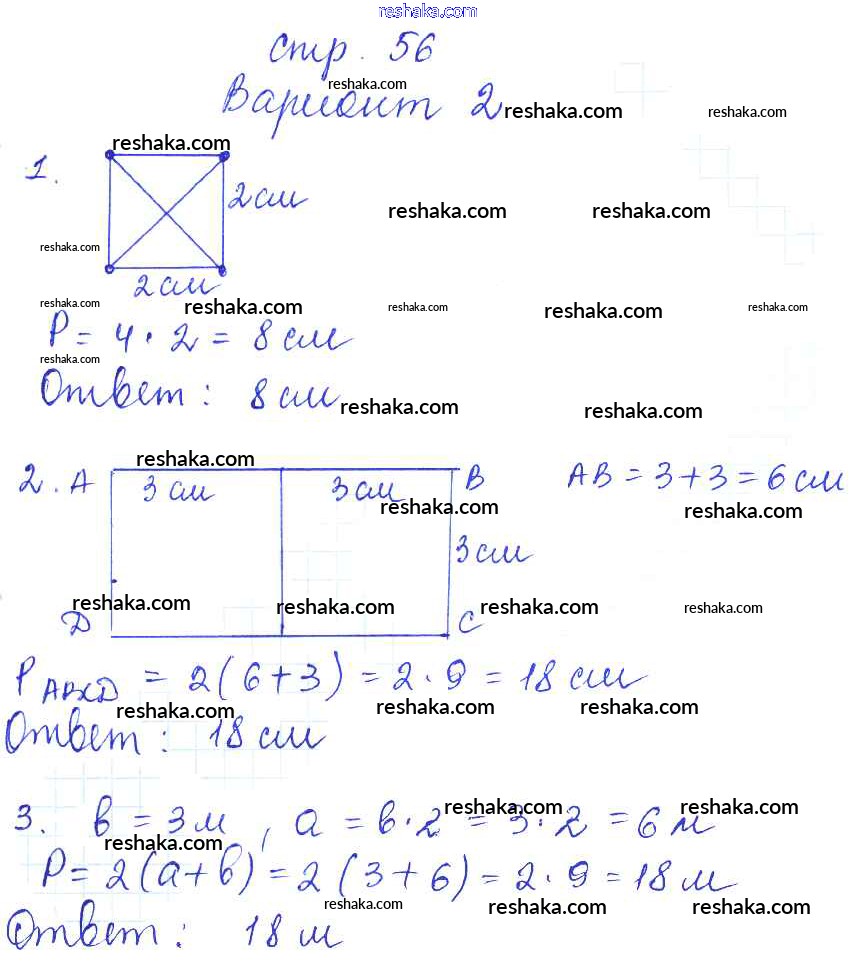 reshaka.com
Стр. 56
reshaka.com
Вариант 2 reshaka.com reshaka.com
reshaka.com
1. 2 см reshaka.com reshaka.com
reshaka.com
2 см
reshaka.com reshaka.com reshaka.com reshaka.com reshaka.com
P = 4 · 2 = 8 см
reshaka.com
Ответ: 8 см reshaka.com reshaka.com
reshaka.com
2. A 3 см 3 см B AB = 3 + 3 = 6 см
reshaka.com reshaka.com
3 см
reshaka.com reshaka.com reshaka.com reshaka.com
D C
P ABCD = 2(6 + 3) = 2 · 9 = 18 см
reshaka.com reshaka.com reshaka.com
Ответ: 18 см
reshaka.com reshaka.com
3. в = 3 м, а = в · 2 = 3 · 2 = 6 м
reshaka.com
P = 2(а + в) = 2(3 + 6) = 2 · 9 = 18 м
reshaka.com reshaka.com reshaka.com
Ответ: 18 м